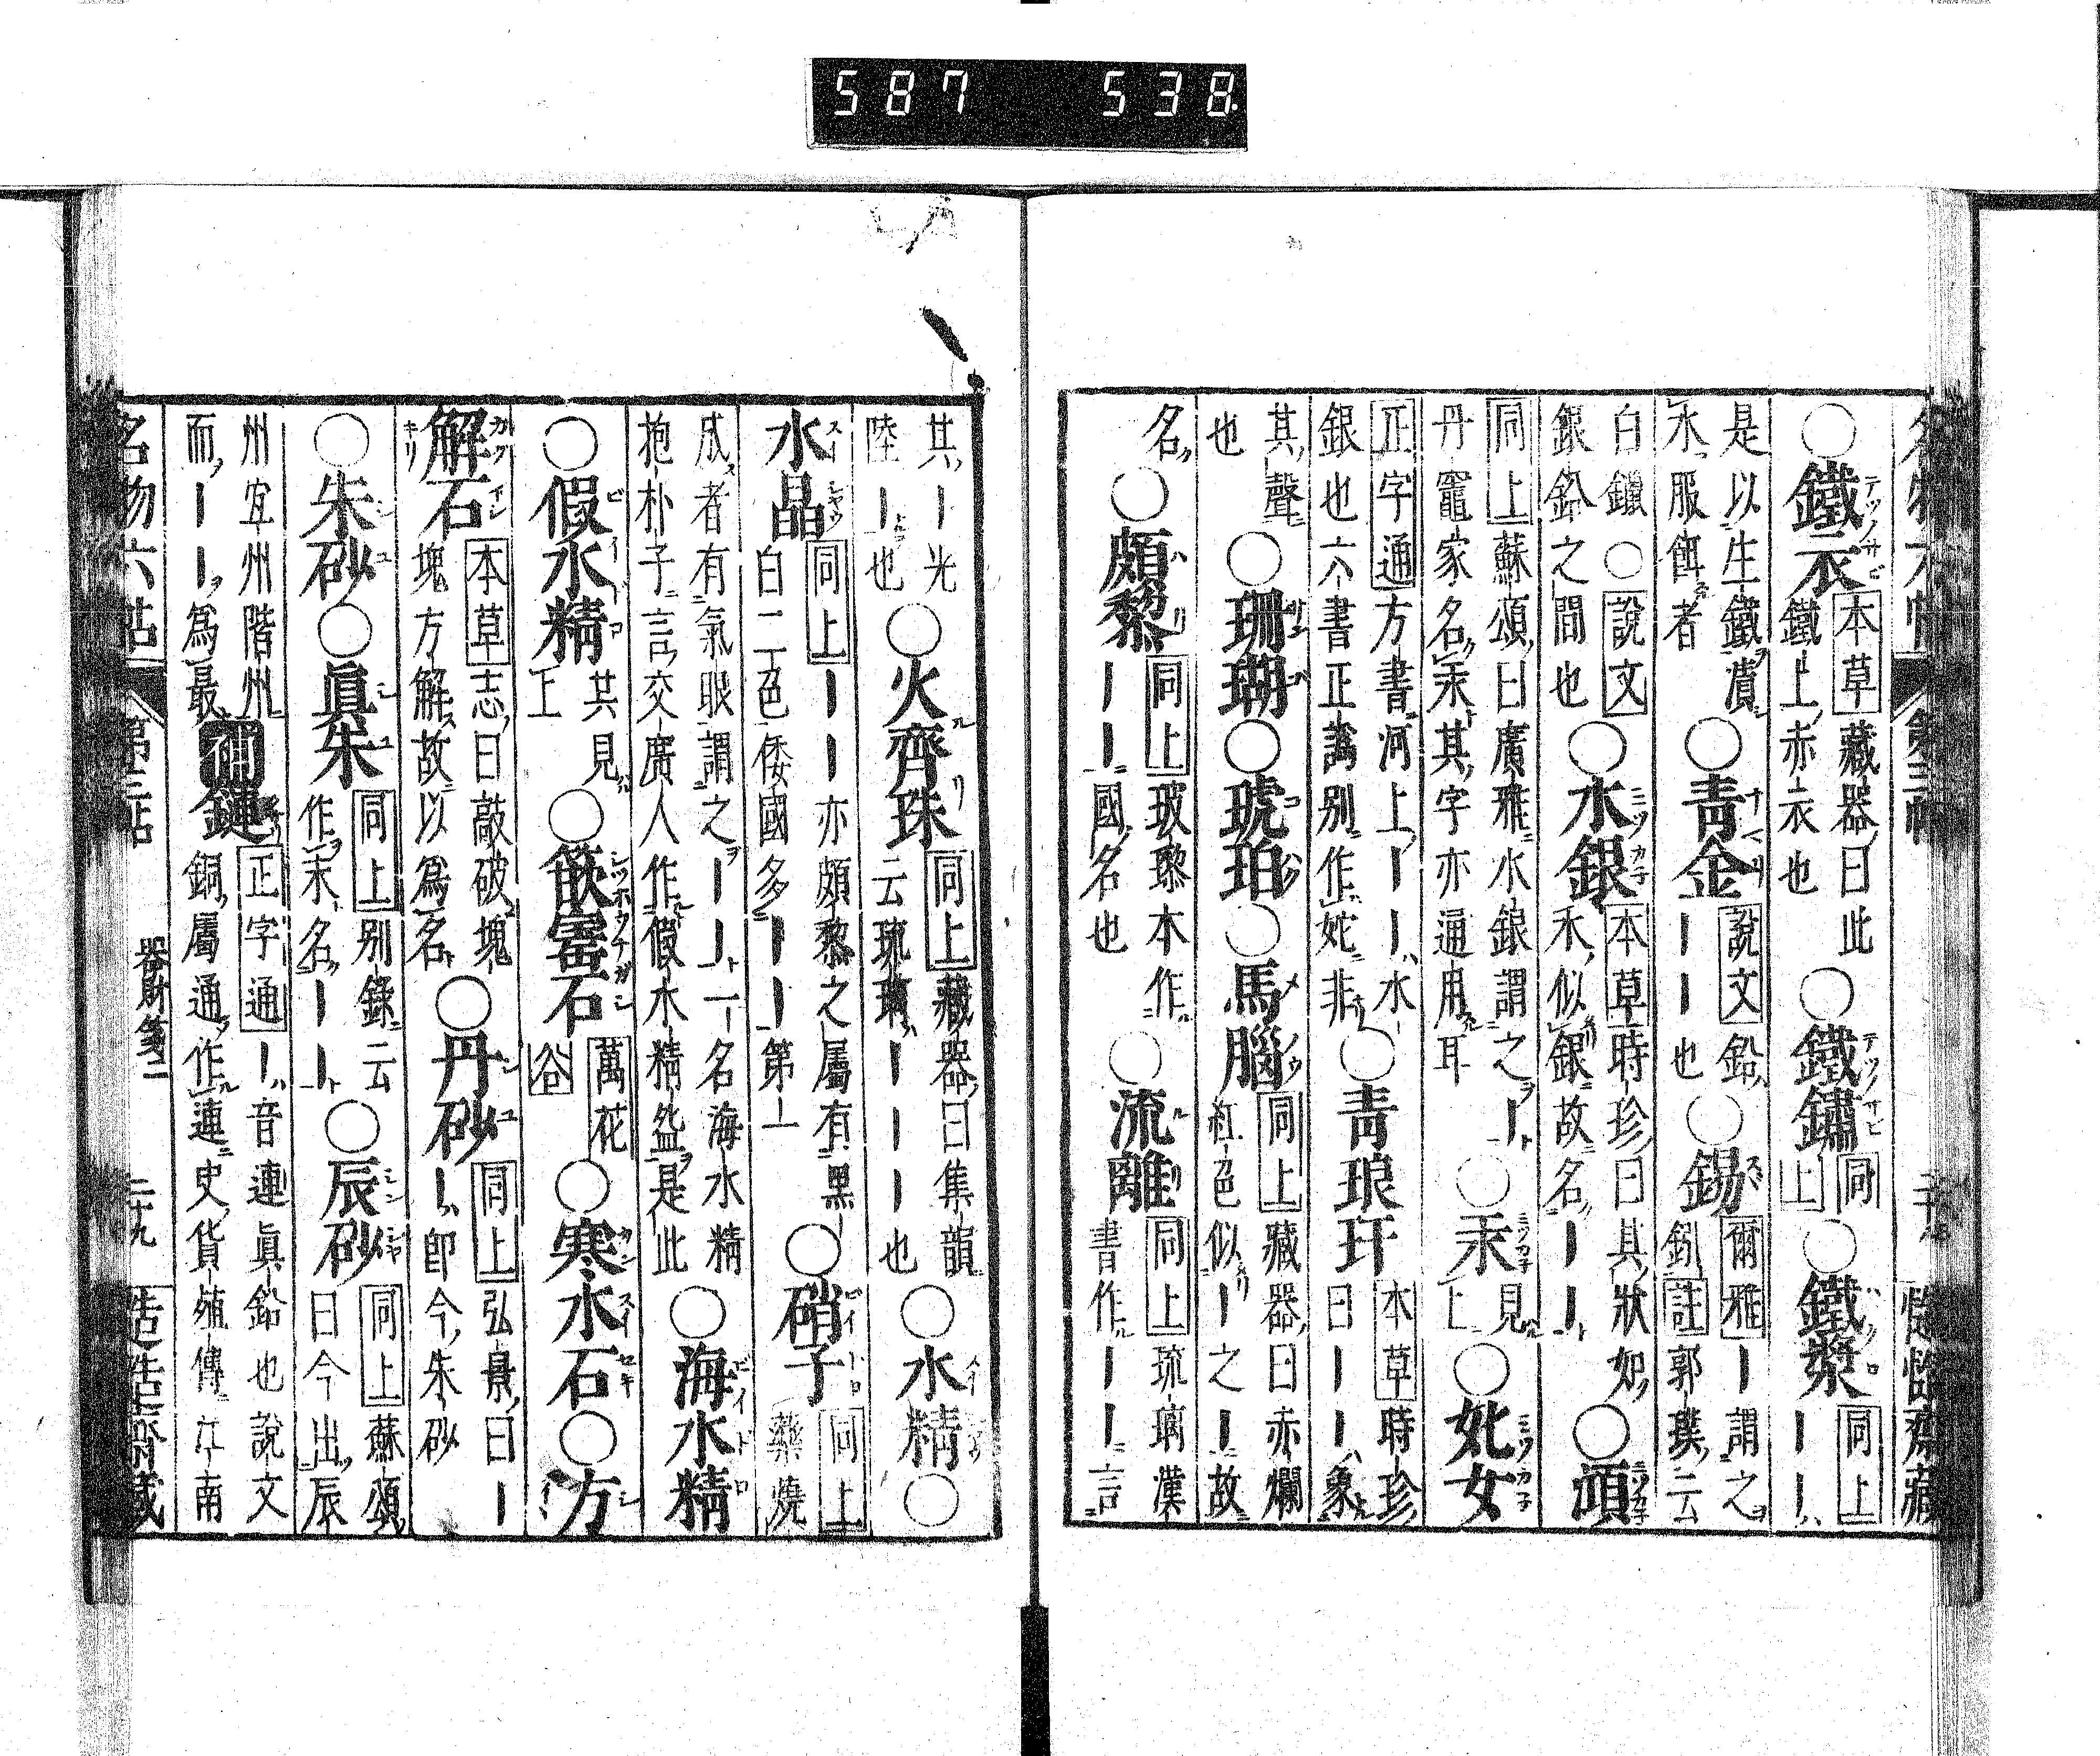 587 538
○鐵衣 本草 藏器曰此鐵上赤衣也 ○鐵鏽 同上 ○鐵漿 同上 ーー
是以生鐵漬水服餌者 ○青金 說文 ーー鉛也 ○錫 爾雅 ー謂之鈏 註 郭璞云
白鑞 ○ 說文 銀鉛之間也 ○水銀 本草 時珍曰其狀如水似銀故名ーー ○澒
同上 蘇頌曰廣雅水銀謂之ー丹竈家名汞其字亦通用耳 ○汞 見上 ○妣女
正字通 方書河上ーー水銀也六書正譌别作姹非 ○青琅玕 本草 時珍曰ーー象
其聲也 ○珊瑚 ○琥珀 ○馬腦 同上 藏器曰赤爛紅色似ー之ー故
名 ○頗黎 同上 玻瓈本作ーー國名也 ○流離 同上 琉璃漢書作ーー言
其ー光陸ー也 ○火齊珠 同上 藏器曰集韻云琉璃ーーー也 ○水精 ○
水晶 同上 ーー亦頗黎之屬有黑白二色倭國多ーー第一 ○硝子 同上 藥燒
成者有氣眼謂之ーー一名海水精抱朴子言交廣人作假水精盌是此 ○海水精
○假水精 共見上 ○嵌窑石 萬花谷 ○寒水石 ○方
解石 本草 志曰敲破塊塊方解故以爲名 ○丹砂 同上 弘景曰ーー即今朱砂
○朱砂 ○眞朱 同上 别錄云作末名ーー ○辰砂 同上 蘇頌曰今出辰
州宜州階州而ーー爲最 補 鏈 正字通 ー音連眞鉛也說文銅屬通作連史貨殖傳江南
名物六帖 第三帖 器財箋二 二十九